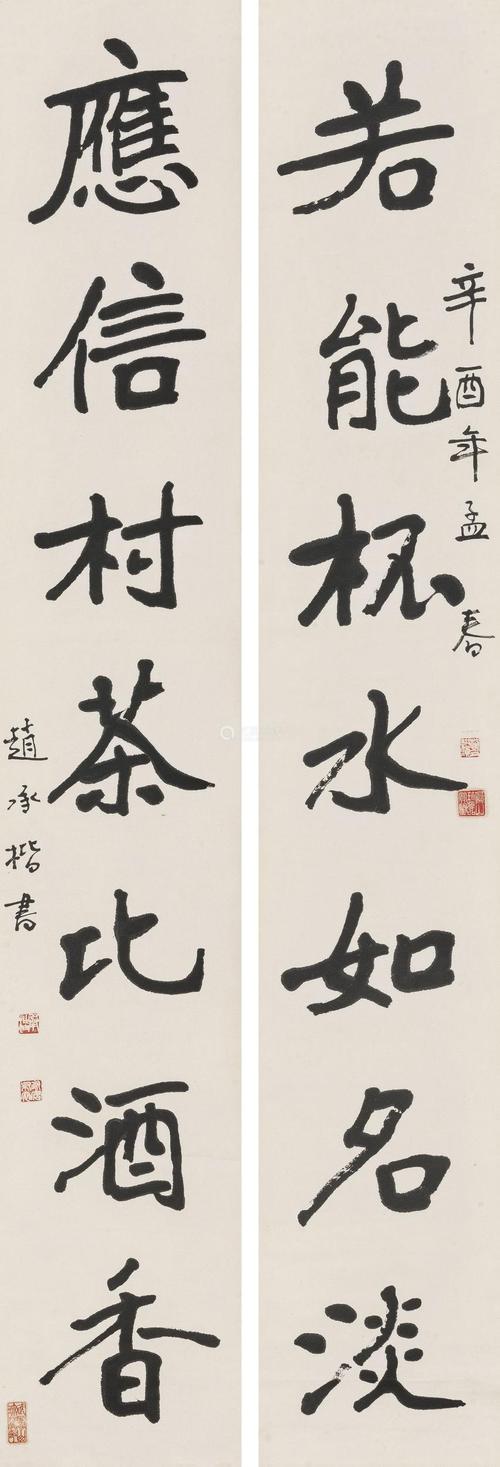 若能杯水如名淡
辛酉年孟春
應信村茶比酒香
趙承楷書